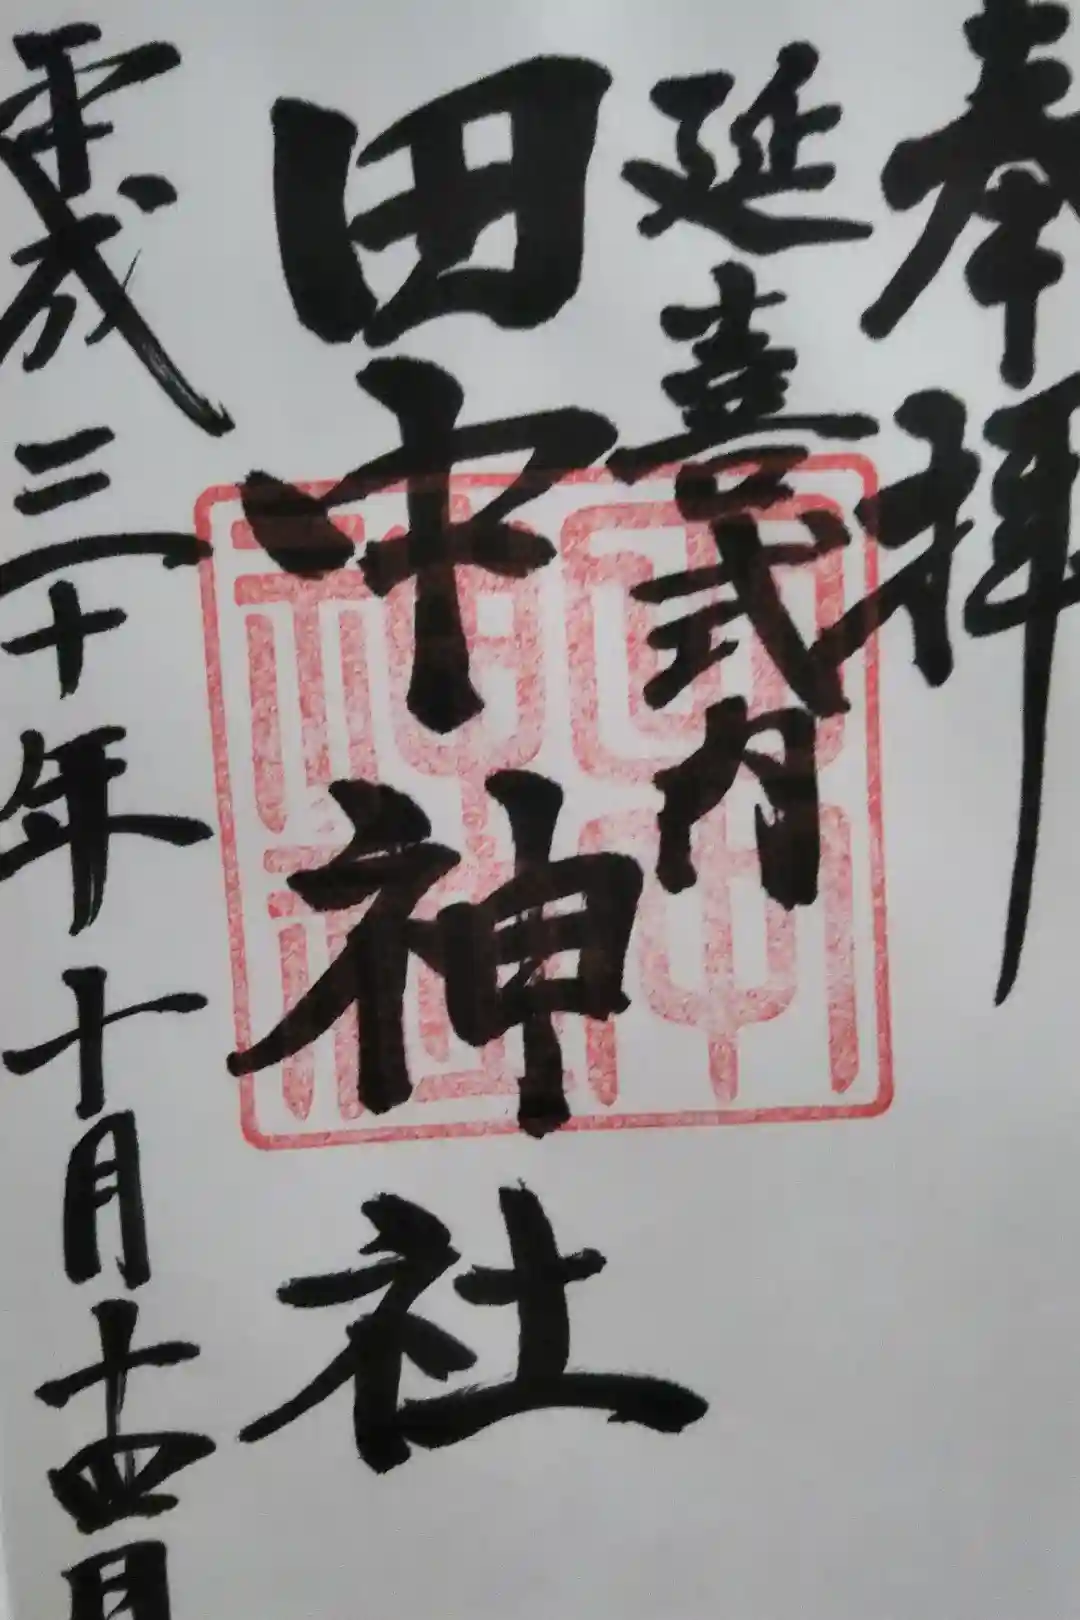 奉拝
延喜式内
田中神社
平成三十年十月十四日
田中神社